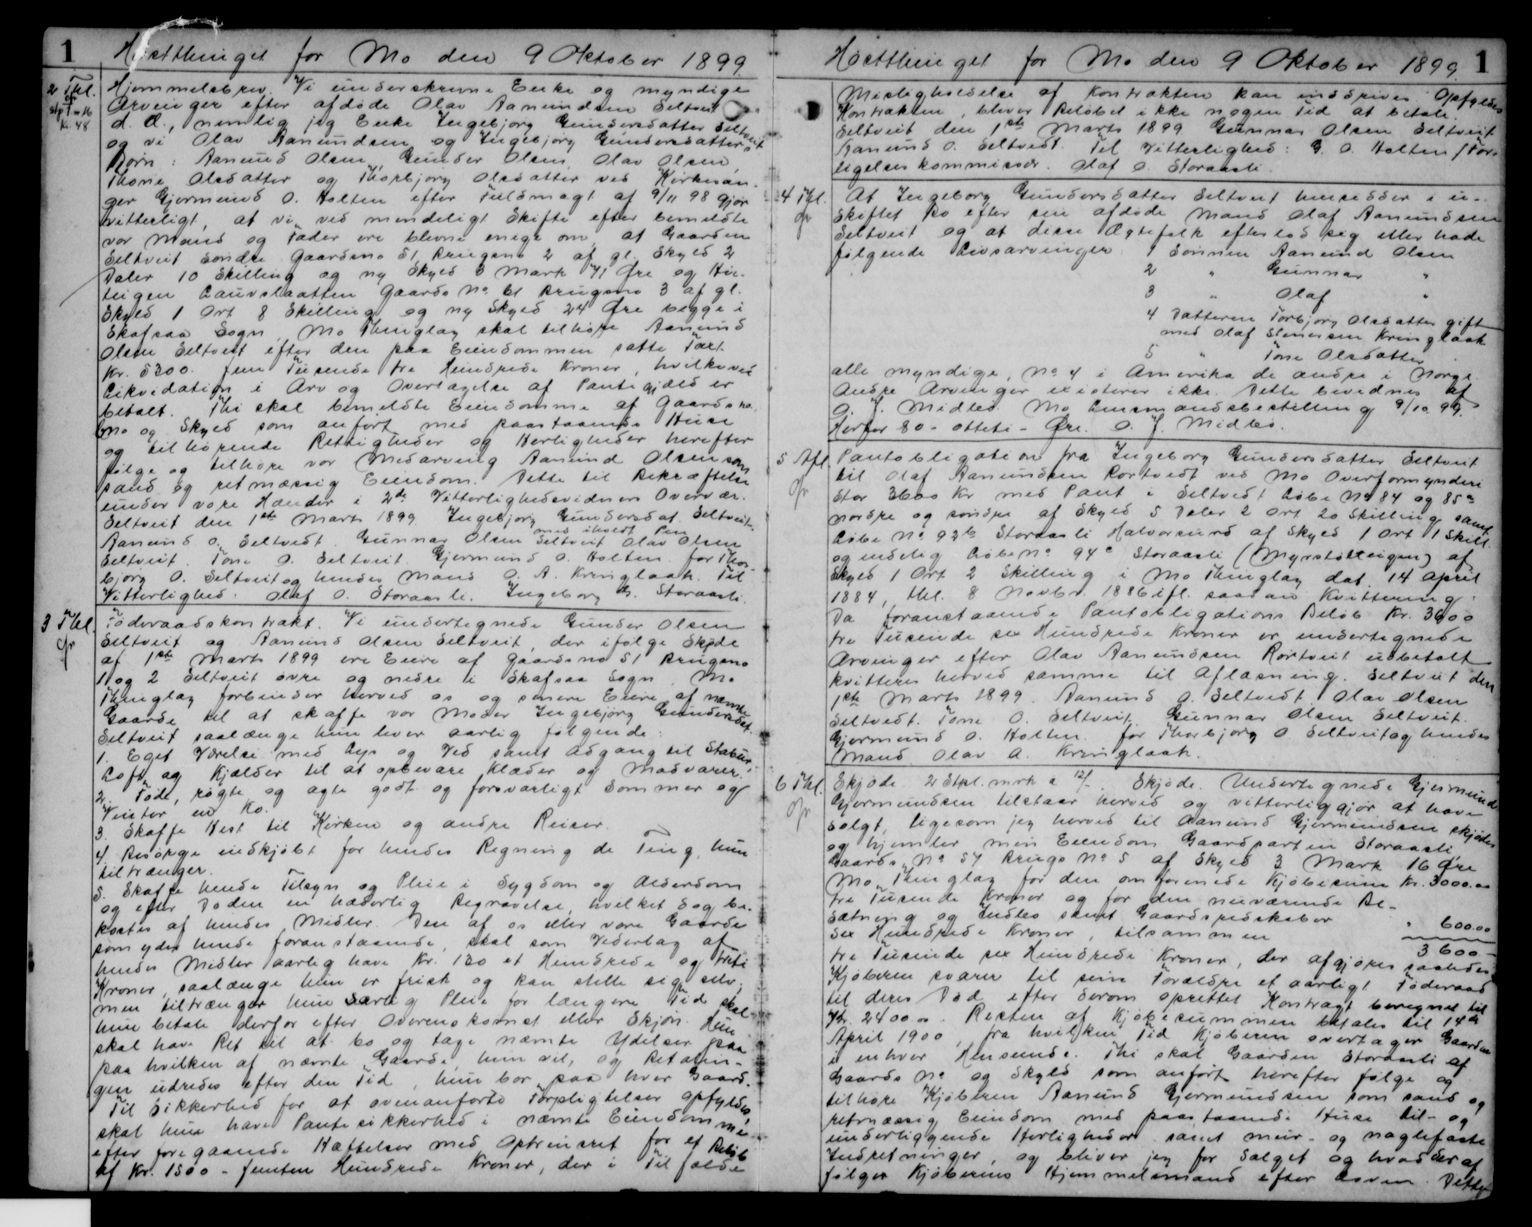 1 Høstthinget for Mo den 9 Oktober 1899
2 Thl.
Hjemmelsbrev. Vi underskrevne Enke og myndige
Arvinger efter afdøde Olav Aanundsen Seltveit
d. Æ., nemlig jeg Enke Ingebjorg Gundersdatter Seltveit
og vi Olav Aanundsen og Ingebjorg Gundersdatters
Børn: Aanund Olsen, Gunder Olsen, Olav Olsen
Thone Olsdatter og Thorbjorg Olsdatter ved Kirkesan-
ger Gjermund O. Holten efter Fuldmagt af 9/11 98 gjør
vitterligt, at vi ved mindeligt Skifte efter bemeldte
vor Mand og Fader ere blevne enige om, at Gaarden
Seltveit søndre Gaardsno 51 Brugsno 2 af gl. Skyld 2
Daler 10 Skilling og ny Skyld 3 Mark 41 Øre og Hus-
teigen Lauvslaatten Gaards No 51 Brugsno 3 af gl.
Skyld 1 Ort 8 Skilling og ny Skyld 24 Øre begge i
Skafsaa Sogn, Mo Thinglag skal tilhøre Aanund
Olsen Seltveit efter den paa Eiendommen satte Taxt
Kr. 5300. Fem Tusende tre Hundrede Kroner, hvilke ved
Likvidation i Arv og Overtagelse af Pantegjæld er
betalt. Thi skal bemeldte Eiendomme af Gaardsno.
Bno og Skyld som anført med paastaaende Huse
og tilhørende Rettigheder og Herligheder herefter
følge og tilhøre vor Medarving Aanund Olsen som
sand og retmæssig Eiendom. Dette til Bekræftelse
under vore Hænder i 2de Vitterlighedsvidners Overvær.
Seltveit den 1ste Marts 1899. Ingebjorg Gundersdat. Seltveit
med iholdt Pen
Aanund O. Seltvedt. Gunnar Olsen Seltveit Olav Olsen
Seltveit. Tone O. Seltveit. Gjermund O. Holten for Thor-
bjorg O. Seltveit og hendes Mand O. A. Kringlaak. Til
Vitterlighed: Olaf O. Storaasli. Ingeborg Storaasli.
3 Thl.
Føderaadskontrakt. Vi undertegnede Gunder Olsen
Seltveit og Aanund Olsen Seltveit, der ifølge Skjøde
af 1ste Marts 1899 ere Eiere af Gaardsno 51 Brugsno
1 og 2 Seltveit øvre og nedre i Skafsaa Sogn Mo
Thinglag forbinder herved os og senere Eiere af nævnte
Gaarde til at skaffe vor Moder Ingebjorg Gundersdat.
Seltveit saalænge hun lever aarlig følgende:
1. Eget Værelse med Lys og Ved samt Adgang til Stabur,
Loft og Kjælder til at opbevare Klæder og Madvarer.
2. Føde, røgte og agte godt og forsvarligt Sommer og
Vinter en Ko.
3. Skaffe Hest til Kirken og andre Reiser.
4. Besørge indkjøbt for hendes Regning de Ting, hun
tiltrænger.
5. Skaffe hende Tilsyn og Pleie i Sygdom og Alderdom
og efter Døden en hæderlig Begravelse, hvilket dog be-
kostes af hendes Midler. Den af os eller vore Gaarde
som yder hende foranstaaende, skal som Vederlag af
hendes Midler aarlig have Kr. 130 et Hundrede og treti
Kroner, saalænge hun er frisk og kan stelle sig selv,
men tiltrænger hun særlig Pleie for længere Tid skal
hun betale derfor efter Overenskomst eller Skjøn. Hun
skal have Ret til at bo og tage nævnte Ydelser paa
paa hvilken af nævnte Gaarde, hun vil, og Betalin-
gen udredes efter den Tid, hun bor paa hver Gaard.
Til Sikkerhed for at ovenanførte Forpligtelser opfyldes,
skal hun have Pantesikkerhed i nævnte Eiendomme
efter foregaaende Hæftelser med Optrinsret for et Beløb
af Kr. 1500 - femten Hundrede Kroner, der i Tilfælde
Høstthinget for Mo den 9 Oktober 1899. 1
Misligholdelse af Kontrakten kan inddrives. Opfyldes
Kontrakten, bliver Beløbet ikke nogen Tid at betale.
Seltveit den 1ste Marts 1899 Gunnar Olsen Seltveit
Aanund O. Seltvedt. Til Vitterlighed: G. O. Holten / For-
ligelseskommissær. Olaf O Storaasli.
4 Thl.
At Ingeborg Gundersdatter Seltveit hensidder i u-
skiftet Bo efter sin afdøde Mand Olaf Aanundsen
Seltveit og at disse Ægtefolk efterlod sig eller havde
følgende Livsarvinger 1 Sønnen Aanund Olsen
2 " Gunnar "
3 " Olaf "
4 Datteren Torbjorg Olsdatter gift
med Olaf Kringlaak
5 " Tone Olsdatter
alle myndige, No 4 i Amerika de andre i Norge
Andre Arvinger existerer ikke. Dette bevidnes af
O. J. Midbø. Mo Lensmandsbestilling 9/10 99.
Herfor 80 - otteti - Øre. O. J. Midbø.
5 Afl.
Pantobligation fra Ingeborg Gundersdatter Seltveit
til Olaf Aanundsen Rortvedt ved Mo Overformynderi
stor 3600 Kr med Pant i Seltvedt Løbe No 84 og 85a
nordre og søndre af Skyld 5 Daler 2 Ort 20 Skilling samt
Løbe No 93b Storaasli Halvorsund af Skyld 1 Ort 1 Skill.
og endelig Løbe No 94c Storaasli (Myrstøtteigen) af
Skyld 1 Ort 2 Skilling i Mo Thinglag dat. 14 April
1884, thl. 8 Novbr. 1886 ifl. saadan Kvittering:
Da foranstaaende Pantobligations Beløb Kr. 3600
tre Tusende sex Hundrede Kroner er undertegnede
Arvinger efter Olav Aanundsen Rortveit udbetalt
kvitteres herved samme til Aflæsning. Seltveit den
1ste Marts 1899. Aanund O. Seltvedt. Olav Olsen
Seltvedt. Tone O. Seltveit. Gunnar Olsen Seltveit.
Gjermund O. Holten for Thorbjorg O Seltveit og hendes
Mand Olav A. Kringlaak.
6 Thl.
Skjøde 2 Stpl. mrk a 12/-. Skjøde. Undertegnede Gjermund
Gjermundsen tilstaar herved og vitterliggjør at have
solgt, ligesom jeg herved til Aanund Gjermundsen skjøder
og hjemler min Eiendom Gaardparten Storaasli
Gaards No 57 Brugs No 5 af Skyld 3 Mark 16 Øre
Mo Thinglag for den omforenede Kjøbesum Kr. 3000.00
tre Tusende Kroner og for den nuværende Be-
sætning og Indbo samt Gaardsredskaber
sex Hundrede Kroner, tilsammen " 600.00
3600-
tre Tusende sex Hundrede Kroner, der afgjøres saaledes
Kjøberen svarer til sine Forældre et aarligt Føderaad
til deres Død efter derom oprettet Kontragt beregnet til
Kr. 2400.00. Resten af Kjøbesummen betales til 14de
April 1900, fra hvilken Tid Kjøberen overtager Gaarden
i enhver Henseende. Thi skal Gaarden Storaasli af
Gaards No og Skyld som anført herefter følge og
tilhøre Kjøberen Aanund Gjermundsen som sand og
retmæssig Eiendom med paastaaende Huse til- og
underliggende Herligheder samt mur- og naglefaste
Indretninger, og bliver jeg for Salget og hvad der af
følger Kjøberens Hjemmelsmand efter Loven. Dette